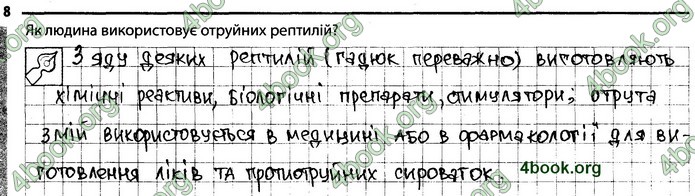 8
Як людина використовує отруйних рептилій?
З яду деяких рептилій (гадюк переважно) виготовляють
хімічні реактиви, біологічні препарати, стимулятори; отрута
змій використовується в медицині або в фармакології для ви-
готовлення ліків та протиотруйних сироваток.
4book.org